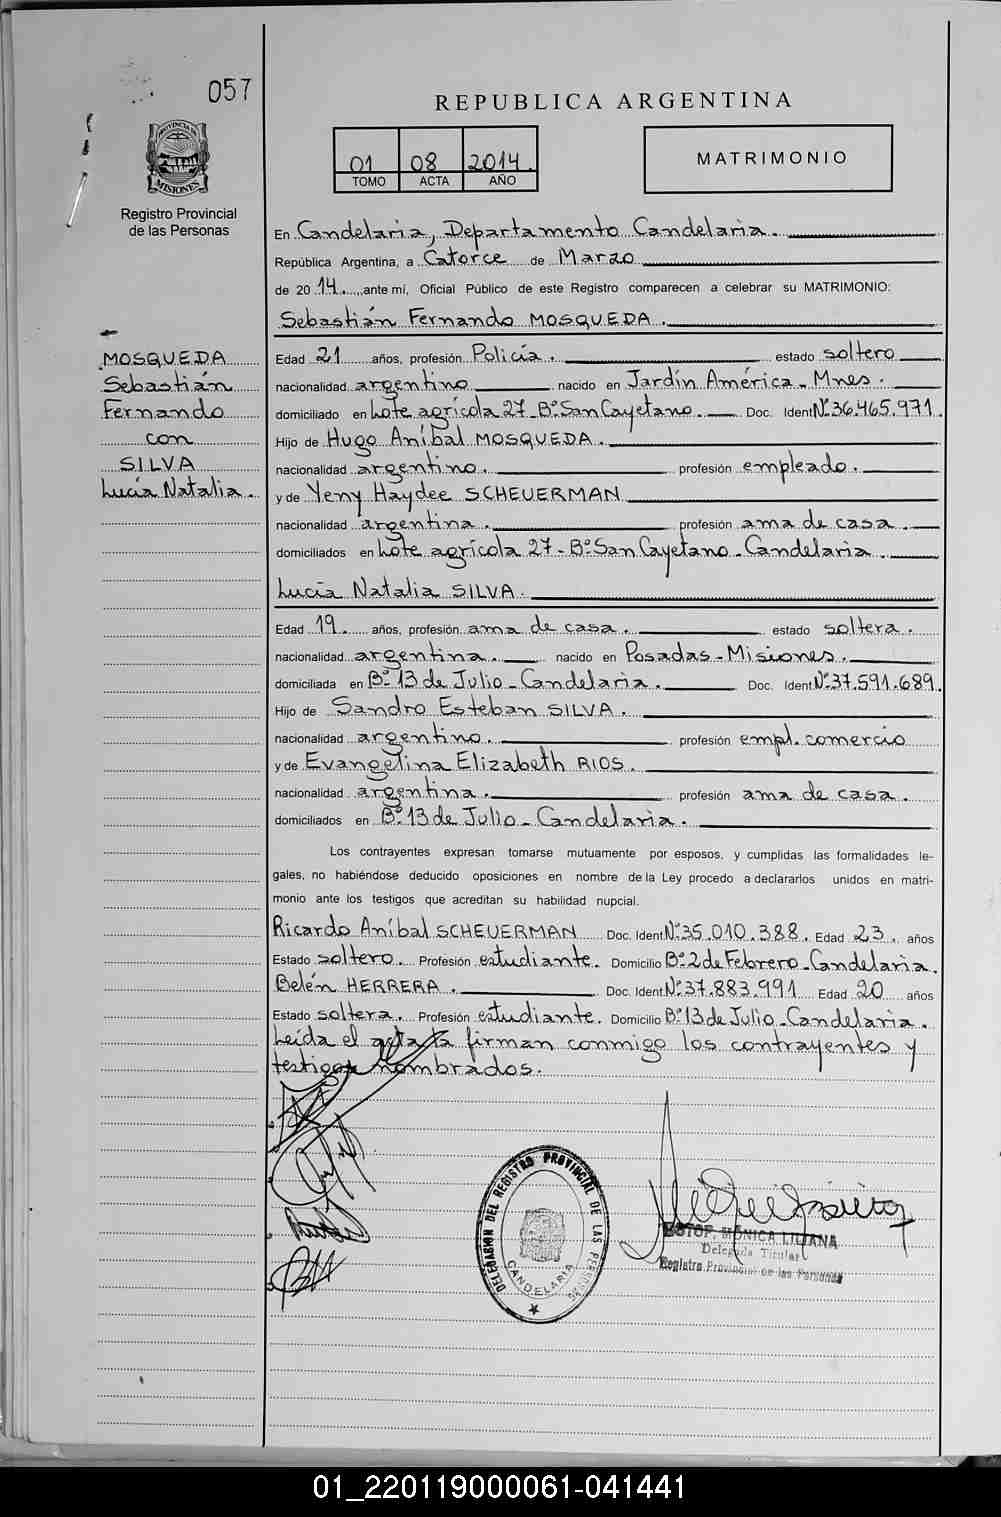 057
REPUBLICA ARGENTINA
01 08 2014.
TOMO ACTA AÑO
MATRIMONIO
PROVINCIA DE MISIONES
Registro Provincial
de las Personas
MOSQUEDA
Sebastián
Fernando
con
SILVA
Lucía Natalia.
En Candelaria, Departamento Candelaria.
República Argentina, a Catorce de Marzo
de 2014. ante mí, Oficial Público de este Registro comparecen a celebrar su MATRIMONIO:
Sebastián Fernando MOSQUEDA.
Edad 21 años, profesión Policía. estado soltero
nacionalidad argentino nacido en Jardín América - Mnes.
domiciliado en Lote agrícola 27 Bº San Cayetano. Doc. Ident Nº 36.465.971.
Hijo de Hugo Aníbal MOSQUEDA.
nacionalidad argentino. profesión empleado.
y de Yeny Haydee SCHEUERMAN
nacionalidad argentina. profesión ama de casa.
domiciliados en Lote agrícola 27 - Bº San Cayetano - Candelaria.
Lucía Natalia SILVA.
Edad 19. años, profesión ama de casa. estado soltera.
nacionalidad argentina. nacido en Posadas - Misiones.
domiciliada en Bº 13 de Julio - Candelaria. Doc. Ident Nº 37.591.689.
Hijo de Sandro Esteban SILVA.
nacionalidad argentino. profesión empl. comercio
y de Evangelina Elizabeth RIOS.
nacionalidad argentina. profesión ama de casa.
domiciliados en Bº 13 de Julio - Candelaria.
Los contrayentes expresan tomarse mutuamente por esposos, y cumplidas las formalidades le-
gales, no habiéndose deducido oposiciones en nombre de la Ley procedo a declararlos unidos en matri-
monio ante los testigos que acreditan su habilidad nupcial.
Ricardo Aníbal SCHEUERMAN Doc. Ident Nº 35.010.388. Edad 23. años
Estado soltero. Profesión estudiante. Domicilio Bº 2 de Febrero - Candelaria.
Belén HERRERA. Doc. Ident Nº 37.883.991 Edad 20 años
Estado soltera. Profesión estudiante. Domicilio Bº 13 de Julio - Candelaria.
Leída el acta la firman conmigo los contrayentes y
testigos nombrados.
DELEGACION DEL REGISTRO PROVINCIAL DE LAS PERSONAS
CANDELARIA
MÓNICA LILIANA
Delegada Titular
Registro Provincial de las Personas
01_220119000061-041441